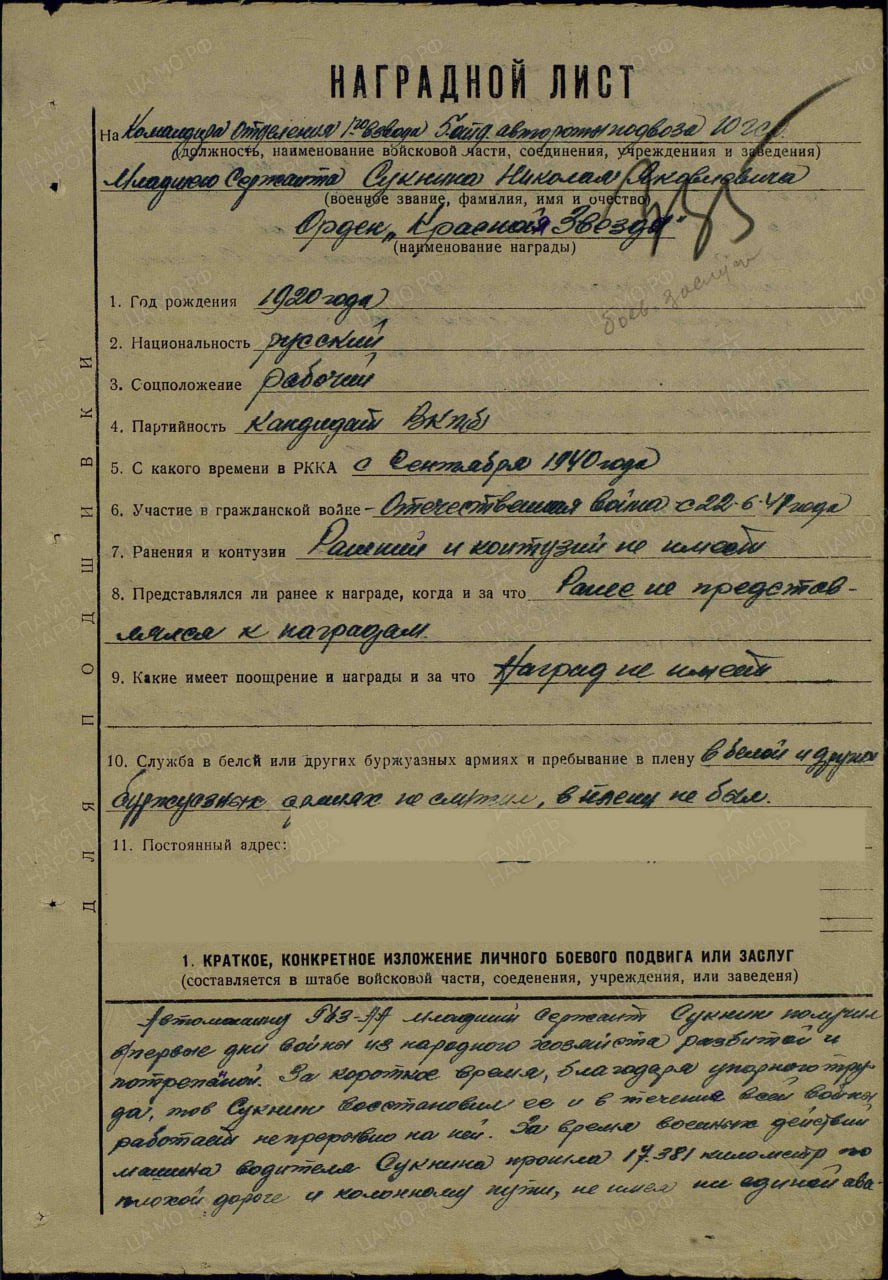 НАГРАДНОЙ ЛИСТ
На Командира Отделения 1го взвода 5 отд. автороты подвоза 10 гсд.
(должность, наименование войсковой части, соединения, учреждениия и заведения)
Младшего Сержанта Сукнина Николая Яковлевича
(военное звание, фамилия, имя и очество)
Орден „Красной Звезды"
(наименование награды)
боев. заслуги
1. Год рождения 1920 года
2. Национальность русский
3. Соцположение рабочий
4. Партийность кандидат ВКПб
5. С какого времени в РККА с Сентября 1940 года
6. Участие в гражданской войне - Отечественная война с 22-6-41 года
7. Ранения и контузии Ранений и контузий не имеет
8. Представлялся ли ранее к награде, когда и за что Ранее не представ-
лялся к наградам.
9. Какие имеет поощрение и награды и за что Наград не имеет
10. Служба в белой или других буржуазных армиях и пребывание в плену в белой и других
буржуазных армиях не служил, в плену не был.
11. Постоянный адрес:
1. КРАТКОЕ, КОНКРЕТНОЕ ИЗЛОЖЕНИЕ ЛИЧНОГО БОЕВОГО ПОДВИГА ИЛИ ЗАСЛУГ
(составляется в штабе войсковой части, соеденения, учреждения, или заведеня)
Автомашину ГАЗ-АА младший Сержант Сукнин получил
в первые дни войны из народного хозяйства разбитой и
потрепаной. За короткое время, благодаря упорного тру-
да, тов Сукнин восстановил ее и в течение всей войны
работает непрерывно на ней. За время военных действий
машина водителя Сукнина прошла 17.381 километр по
плохой дороге и колонному пути, не имея ни единой ава-
ДЛЯ ПОДШИВКИ